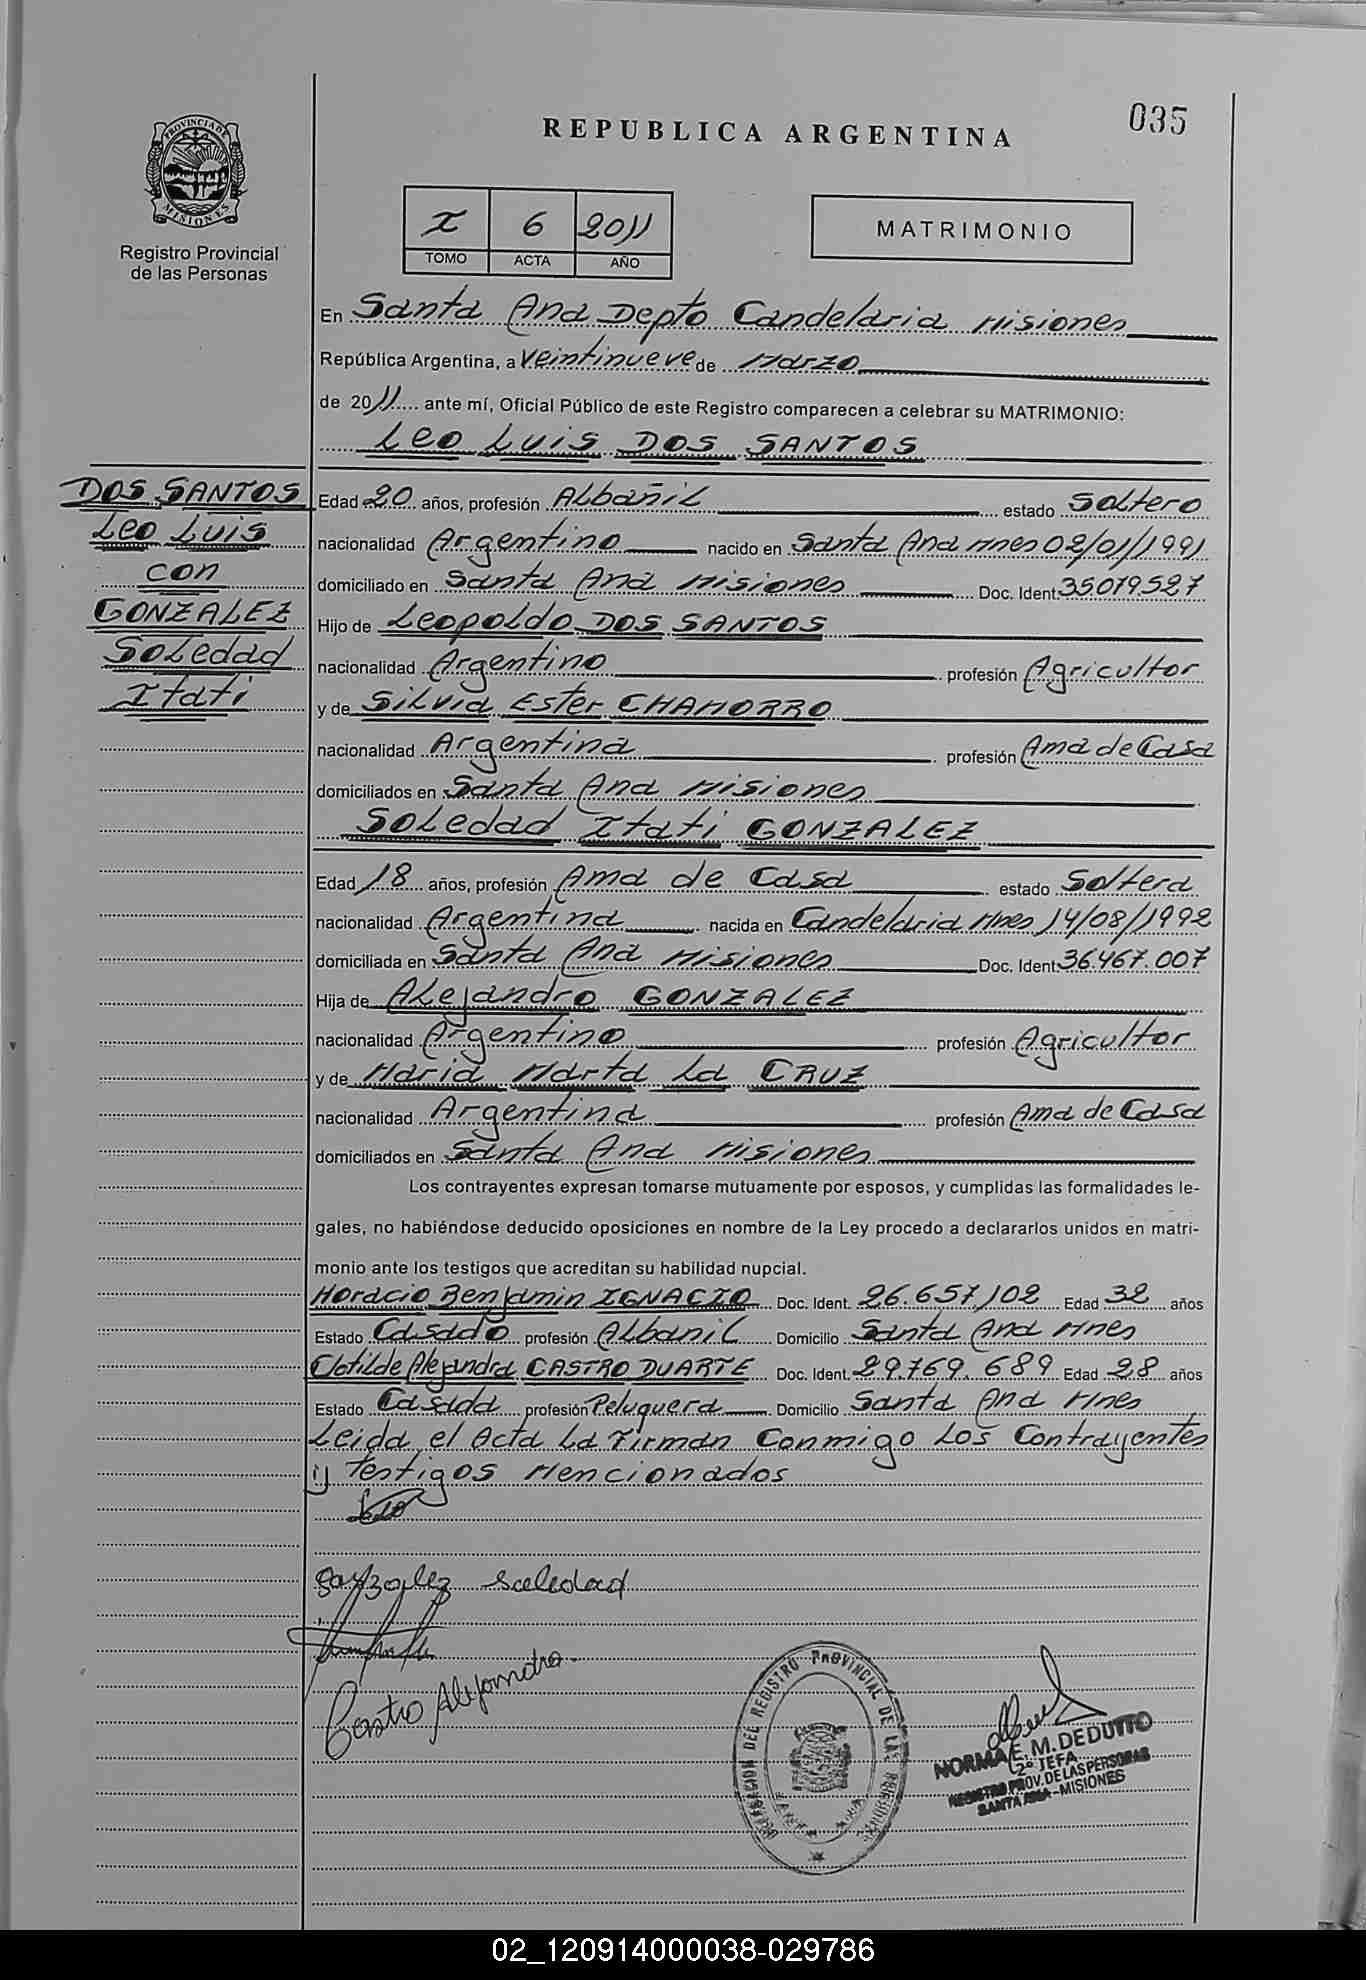 035
REPUBLICA ARGENTINA
PROVINCIA DE MISIONES
Registro Provincial
de las Personas
I 6 2011
TOMO ACTA AÑO
MATRIMONIO
En Santa Ana Depto Candelaria Misiones
República Argentina, a veintinueve de Marzo
de 2011 ante mí, Oficial Público de este Registro comparecen a celebrar su MATRIMONIO:
Leo Luis DOS SANTOS
DOS SANTOS
Leo Luis
con
GONZALEZ
Soledad
Itati
Edad 20 años, profesión Albañil estado Soltero
nacionalidad Argentino nacido en Santa Ana Mnes 02/01/1991
domiciliado en Santa Ana Misiones Doc. Ident. 35.079.527
Hijo de Leopoldo DOS SANTOS
nacionalidad Argentino profesión Agricultor
y de Silvia Ester CHAMORRO
nacionalidad Argentina profesión Ama de Casa
domiciliados en Santa Ana Misiones
Soledad Itati GONZALEZ
Edad 18 años, profesión Ama de Casa estado Soltera
nacionalidad Argentina nacida en Candelaria Mnes 14/08/1992
domiciliada en Santa Ana Misiones Doc. Ident. 36.467.007
Hija de Alejandro GONZALEZ
nacionalidad Argentino profesión Agricultor
y de Maria Marta La CRUZ
nacionalidad Argentina profesión Ama de Casa
domiciliados en Santa Ana Misiones
Los contrayentes expresan tomarse mutuamente por esposos, y cumplidas las formalidades le-
gales, no habiéndose deducido oposiciones en nombre de la Ley procedo a declararlos unidos en matri-
monio ante los testigos que acreditan su habilidad nupcial.
Horacio Benjamin IGNACIO Doc. Ident. 26.657.102 Edad 32 años
Estado Casado profesión Albanil Domicilio Santa Ana Mnes
Clotilde Alejandra CASTRO DUARTE Doc. Ident. 29.769.689 Edad 28 años
Estado Casada profesión Peluquera Domicilio Santa Ana Mnes
Leida el Acta La Firman Conmigo Los Contrayentes
y Testigos Mencionados
Leo
Gonzalez Soledad
Castro Alejandra
DELEGACION DEL REGISTRO PROVINCIAL DE LAS PERSONAS
SANTA ANA
NORMA E. M. DEDUTTO
2º JEFA
REGISTRO PROV. DE LAS PERSONAS
SANTA ANA - MISIONES
02_120914000038-029786